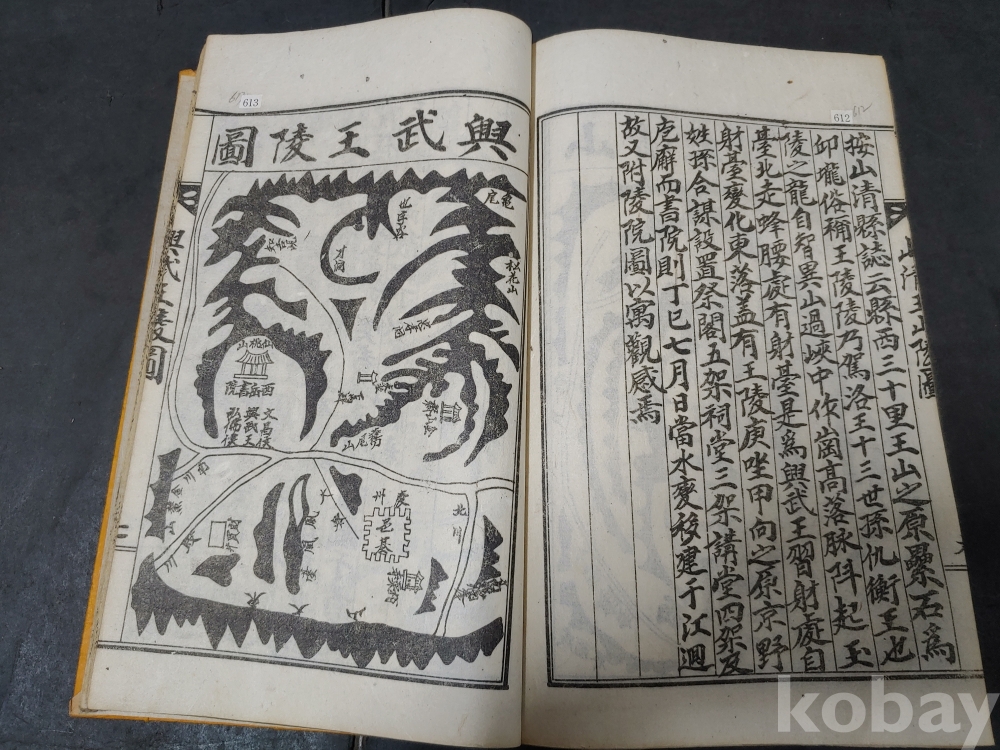 612
612
按山清縣誌云縣西三十里王山之原壘石爲
卬壠俗稱王陵陵乃駕洛王十三世孫仇衡王也
陵之龍自智異山過峽中作崗高落脉阧起玉
臺北走蜂腰處有射臺是爲興武王習射處自
射臺变化東落盖有王陵庚坐甲向之原京野
姓孫合謀設置祭閣五架祠堂三架講堂四架及
庖廨而書院則丁巳七月日當水变移建于江逥
故又附陵院圖以寓觀感焉
613
興武王陵圖
興武王陵圖
龜尾
松花山
仙桃山
西岳書院
文昌侯
興武王
弘儒侯
南川
慶州
邑基
鳳凰臺
北川
kobay